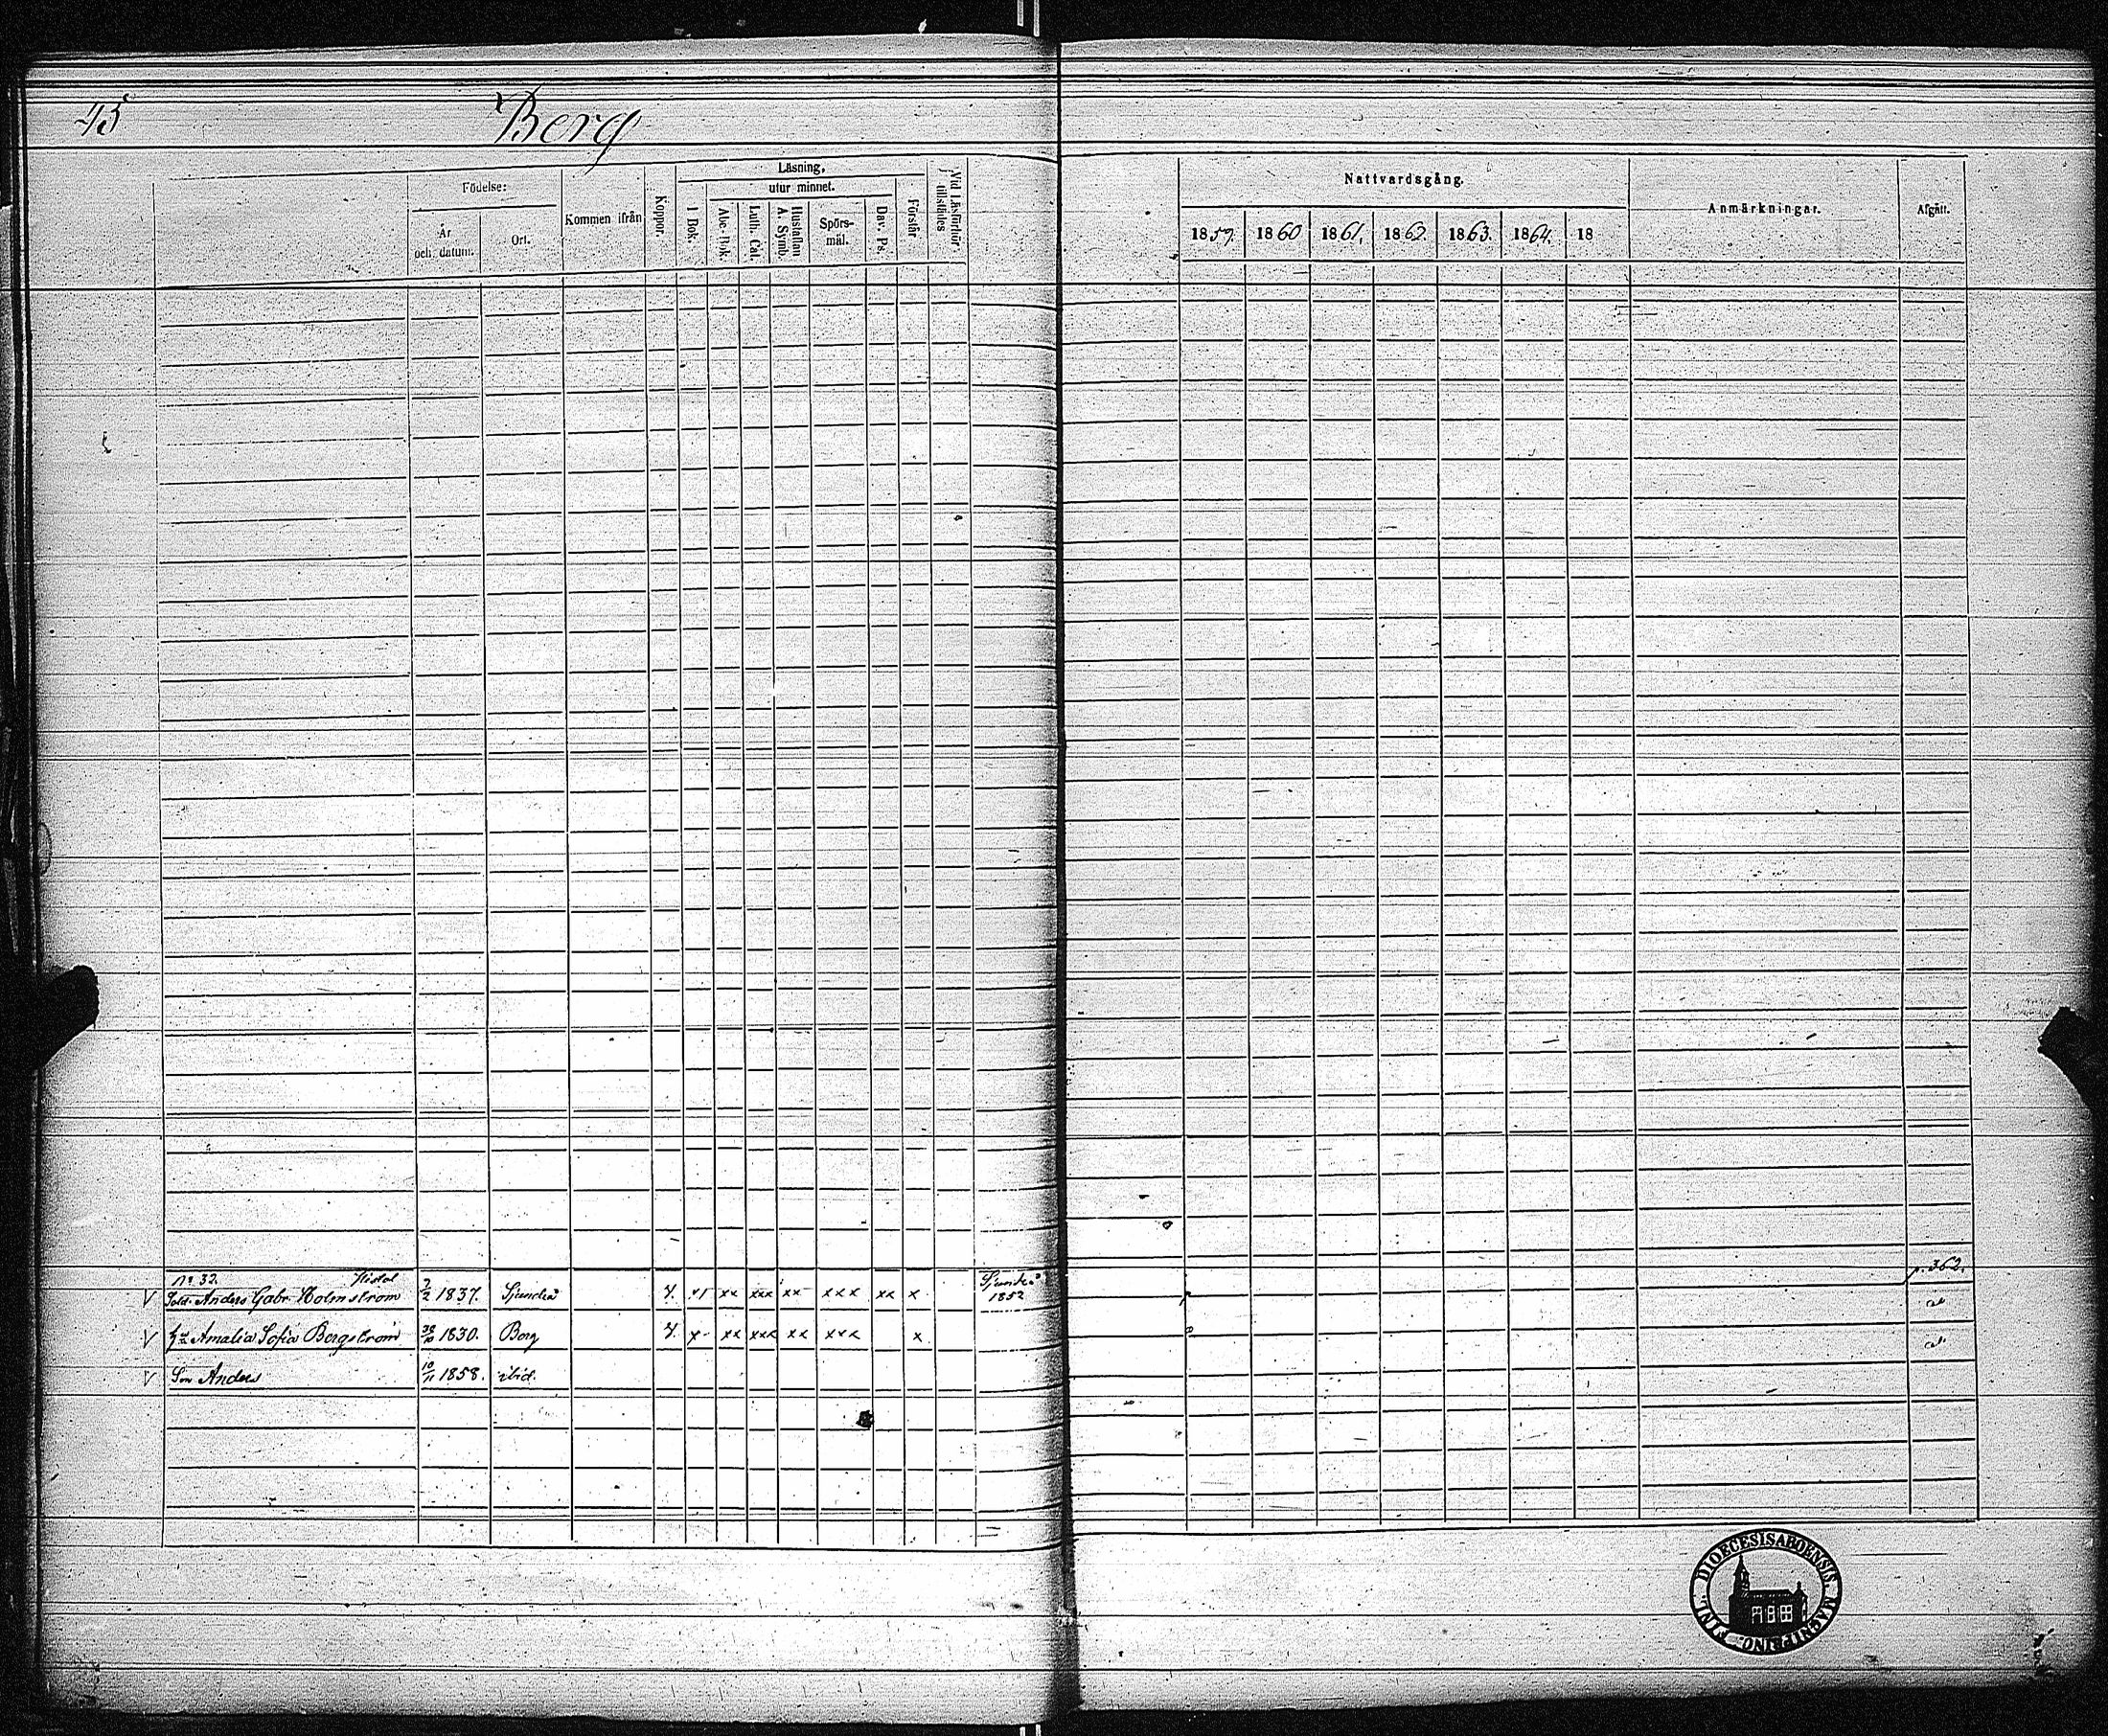 45
Berg
Födelse:
År och. datum.
Ort.
Kommen ifrån
Koppor.
Läsning,
utur minnet.
I Bok.
Abc-Bok.
Luth. Cat.
Hustaflan A. Symb.
Spörs-mål.
Dav. Ps.
Förstår
Vid Läsförhör tillstädes
Nattvardsgång.
1859. 1860 1861. 1862. 1863. 1864. 18
Anmärkningar.
Afgått.
No 32.
Sold. Anders Gabr. Holmström 2/2 1837. Sjundeå x xx xxx xx xxx xx x 1852
p. 362.
Amalia Sofia Bergström 30/10 1830. Berg x xx xxx xx xxx x
Son Anders 10/11 1858. ibid.
DIOECESIS ABOENSIS MAGNI PRINC. FINL.